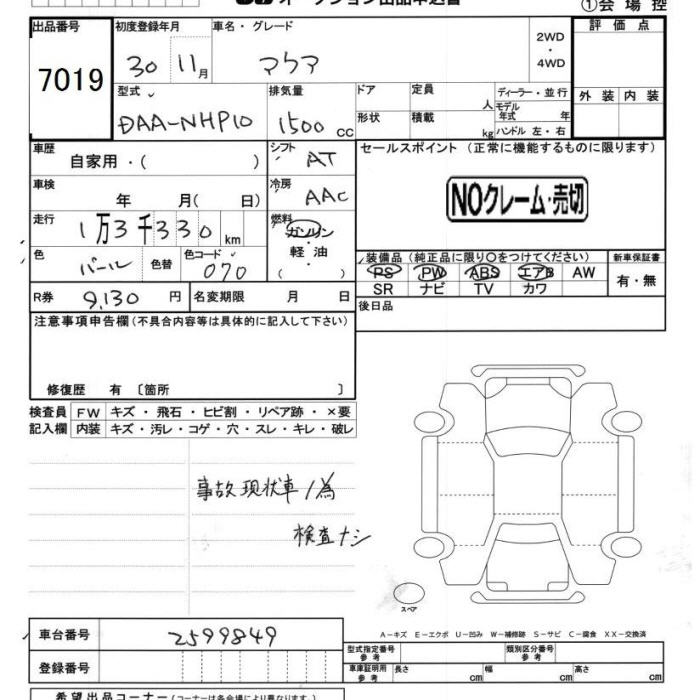 オークション出品申込書
①会場控
出品番号 初度登録年月 車名・グレード 2WD・4WD 評価点
7019 30 11月 アクア
型式 排気量 ドア 定員 人 ディーラー・並行 外装 内装
DAA-NHP10 1500 CC 形状 積載 kg モデル年式 年 ハンドル 左・右
車歴 自家用・( ) シフト AT セールスポイント (正常に機能するものに限ります)
車検 年 月( 日) 冷房 AAC NOクレーム・売切
走行 1万3千330 km 燃料 ガソリン・軽油 ( )
色 パール 色替 色コード 070 装備品 (純正品に限り〇をつけてください) 新車保証書
PS PW ABS エアB AW 有・無
SR ナビ TV カワ
R券 9,130 円 名変期限 月 日 後日品
注意事項申告欄 (不具合内容等は具体的に記入して下さい)
修復歴 有 〔箇所 〕
検査員 FW キズ・飛石・ヒビ割・リペア跡・×要
記入欄 内装 キズ・汚レ・コゲ・穴・スレ・キレ・破レ
事故現状車ノ為
検査ナシ
スペア
車台番号 2599849
A-キズ E-エクボ U-凹み W-補修跡 S-サビ C-腐食 XX-交換済
登録番号 型式指定番号 参考 類別区分番号 参考
車庫証明用 参考 長さ cm 幅 cm 高さ cm
希望出品コーナー (コーナーは各会場により異なります。)